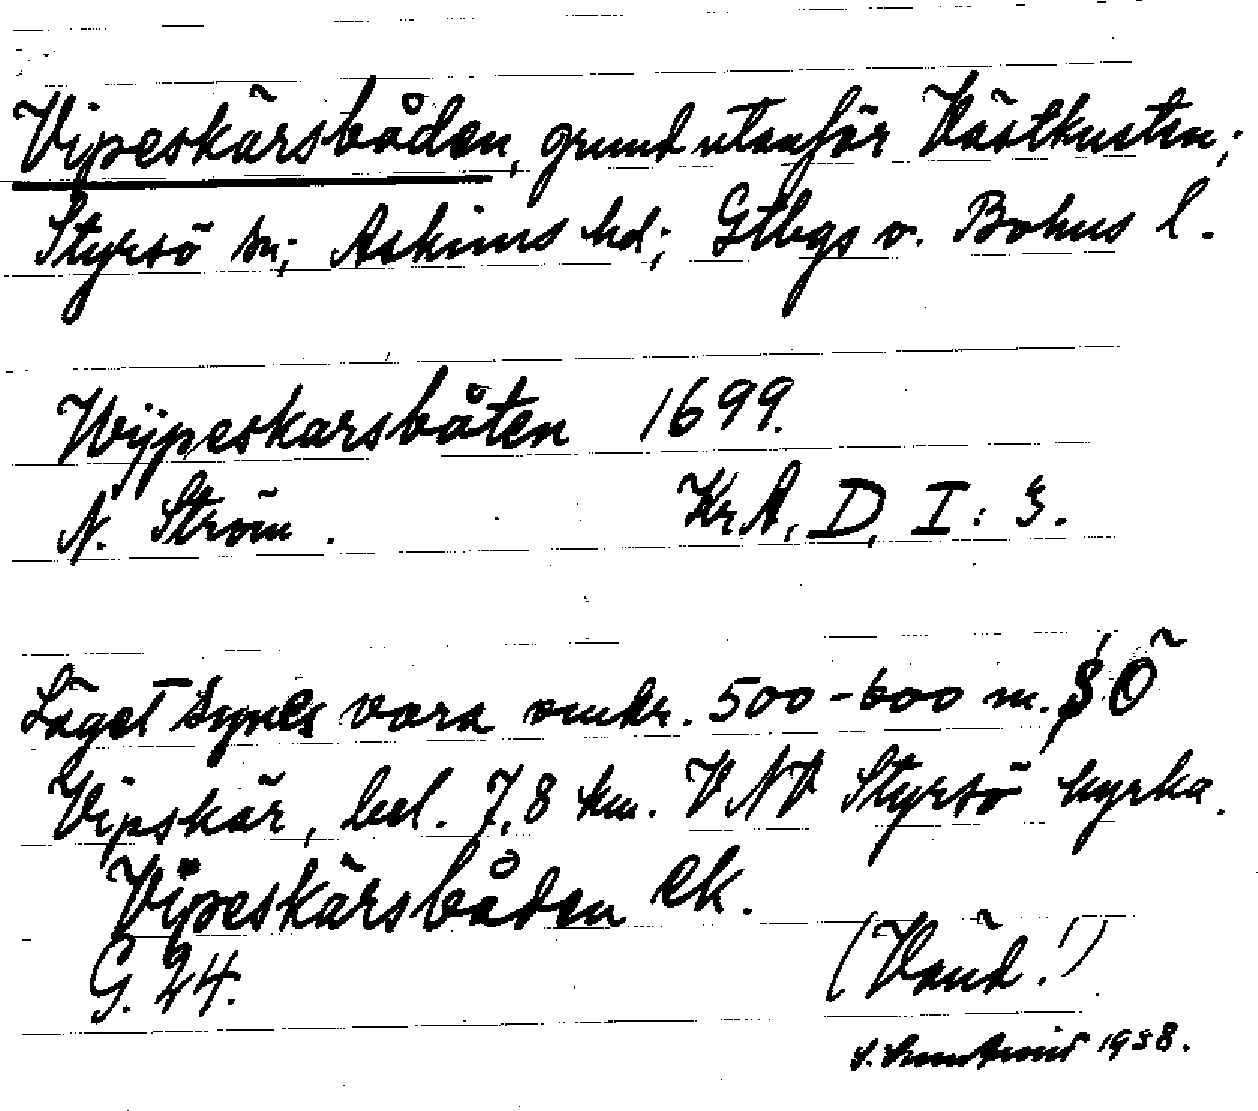 Vipeskärsbåden, grund utanför Västkusten;
Styrsö sn; Askims hd; Gtbgs o. Bohus l.
Wijpeskarsbåten 1699.
N. Ström. KrA, D, I: 3.
Läget synes vara omkr. 500-600 m. SÖ
Vipskär, bel. 7,8 km. VNV Styrsö kyrka.
Vipeskärsbåden ek.
G. 24. (Vänd!)
1938.